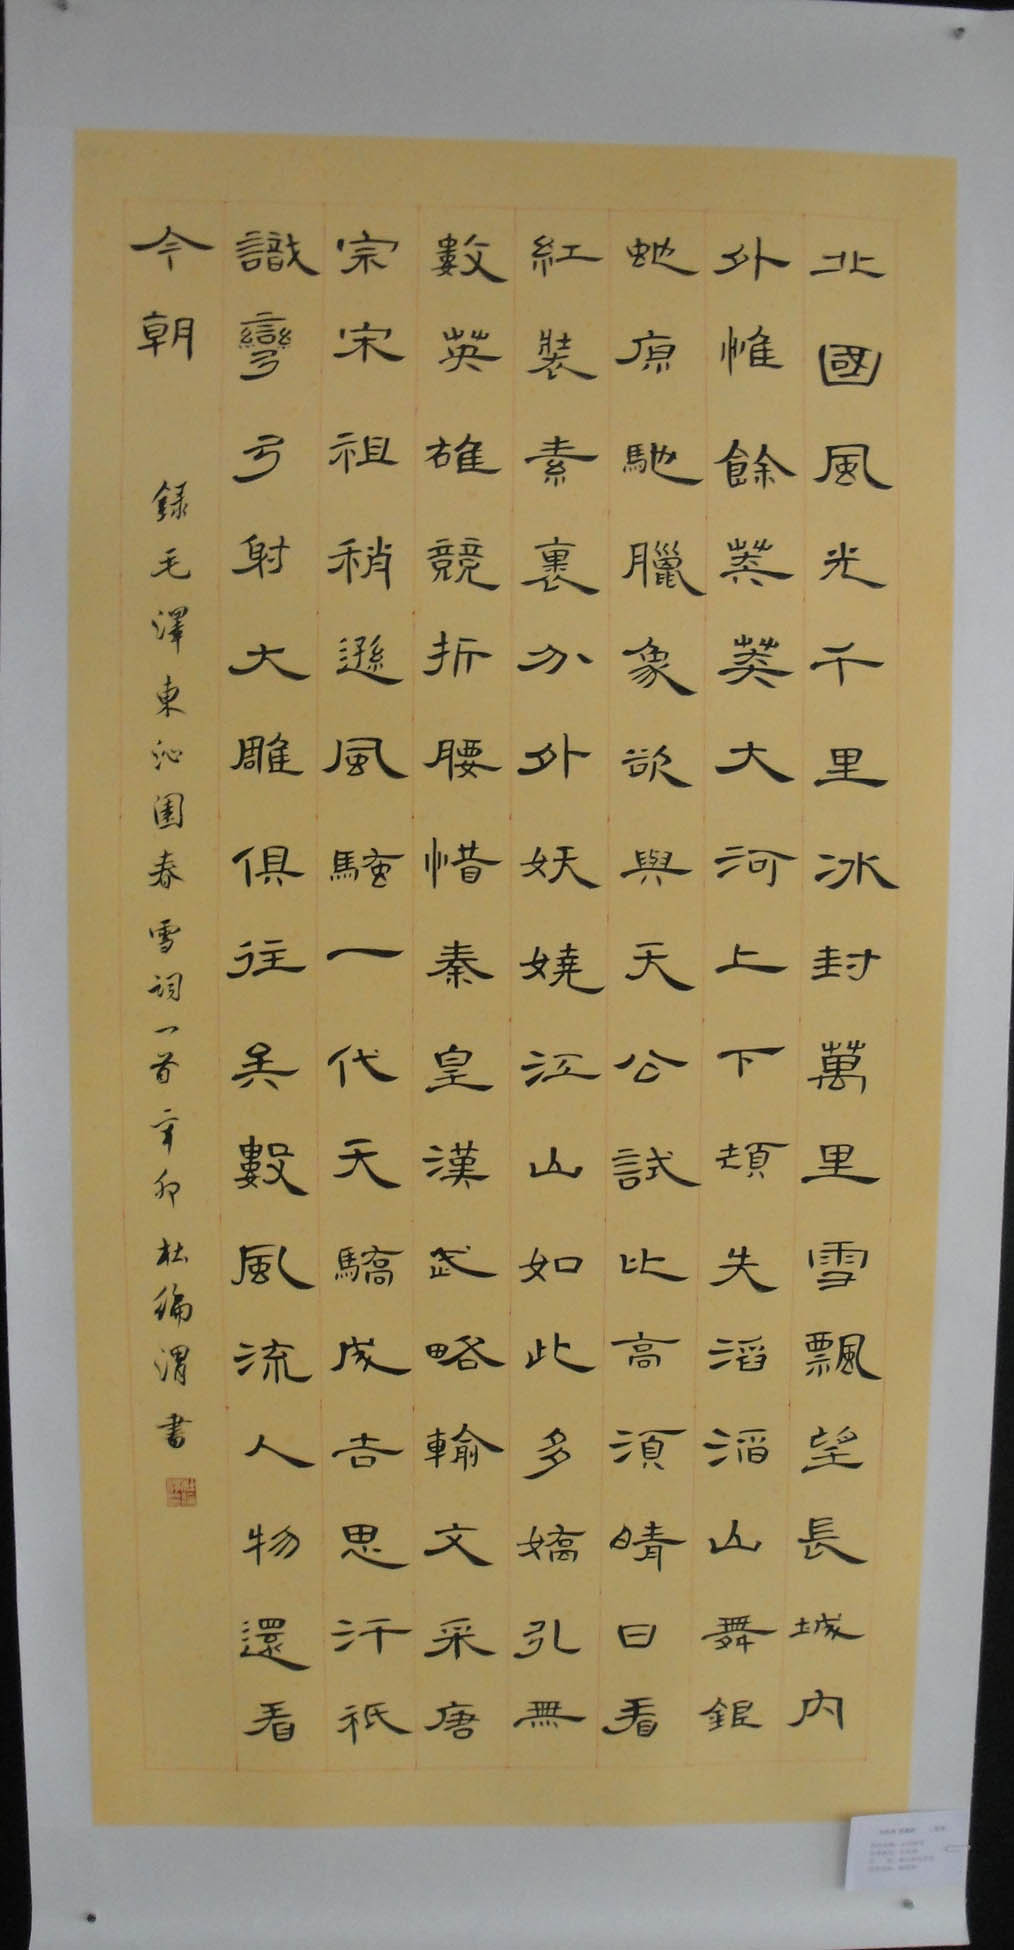 北國風光千里冰封萬里雪飄望長城內
外惟餘莽莽大河上下頓失滔滔山舞銀
蛇原馳臘象欲與天公試比高須晴日看
紅裝素裹分外妖嬈江山如此多嬌引無
數英雄競折腰惜秦皇漢武略輸文采唐
宗宋祖稍遜風騷一代天驕成吉思汗祇
識彎弓射大雕俱往矣數風流人物還看
今朝
錄毛澤東沁園春雪詞一首辛卯杜編渭書